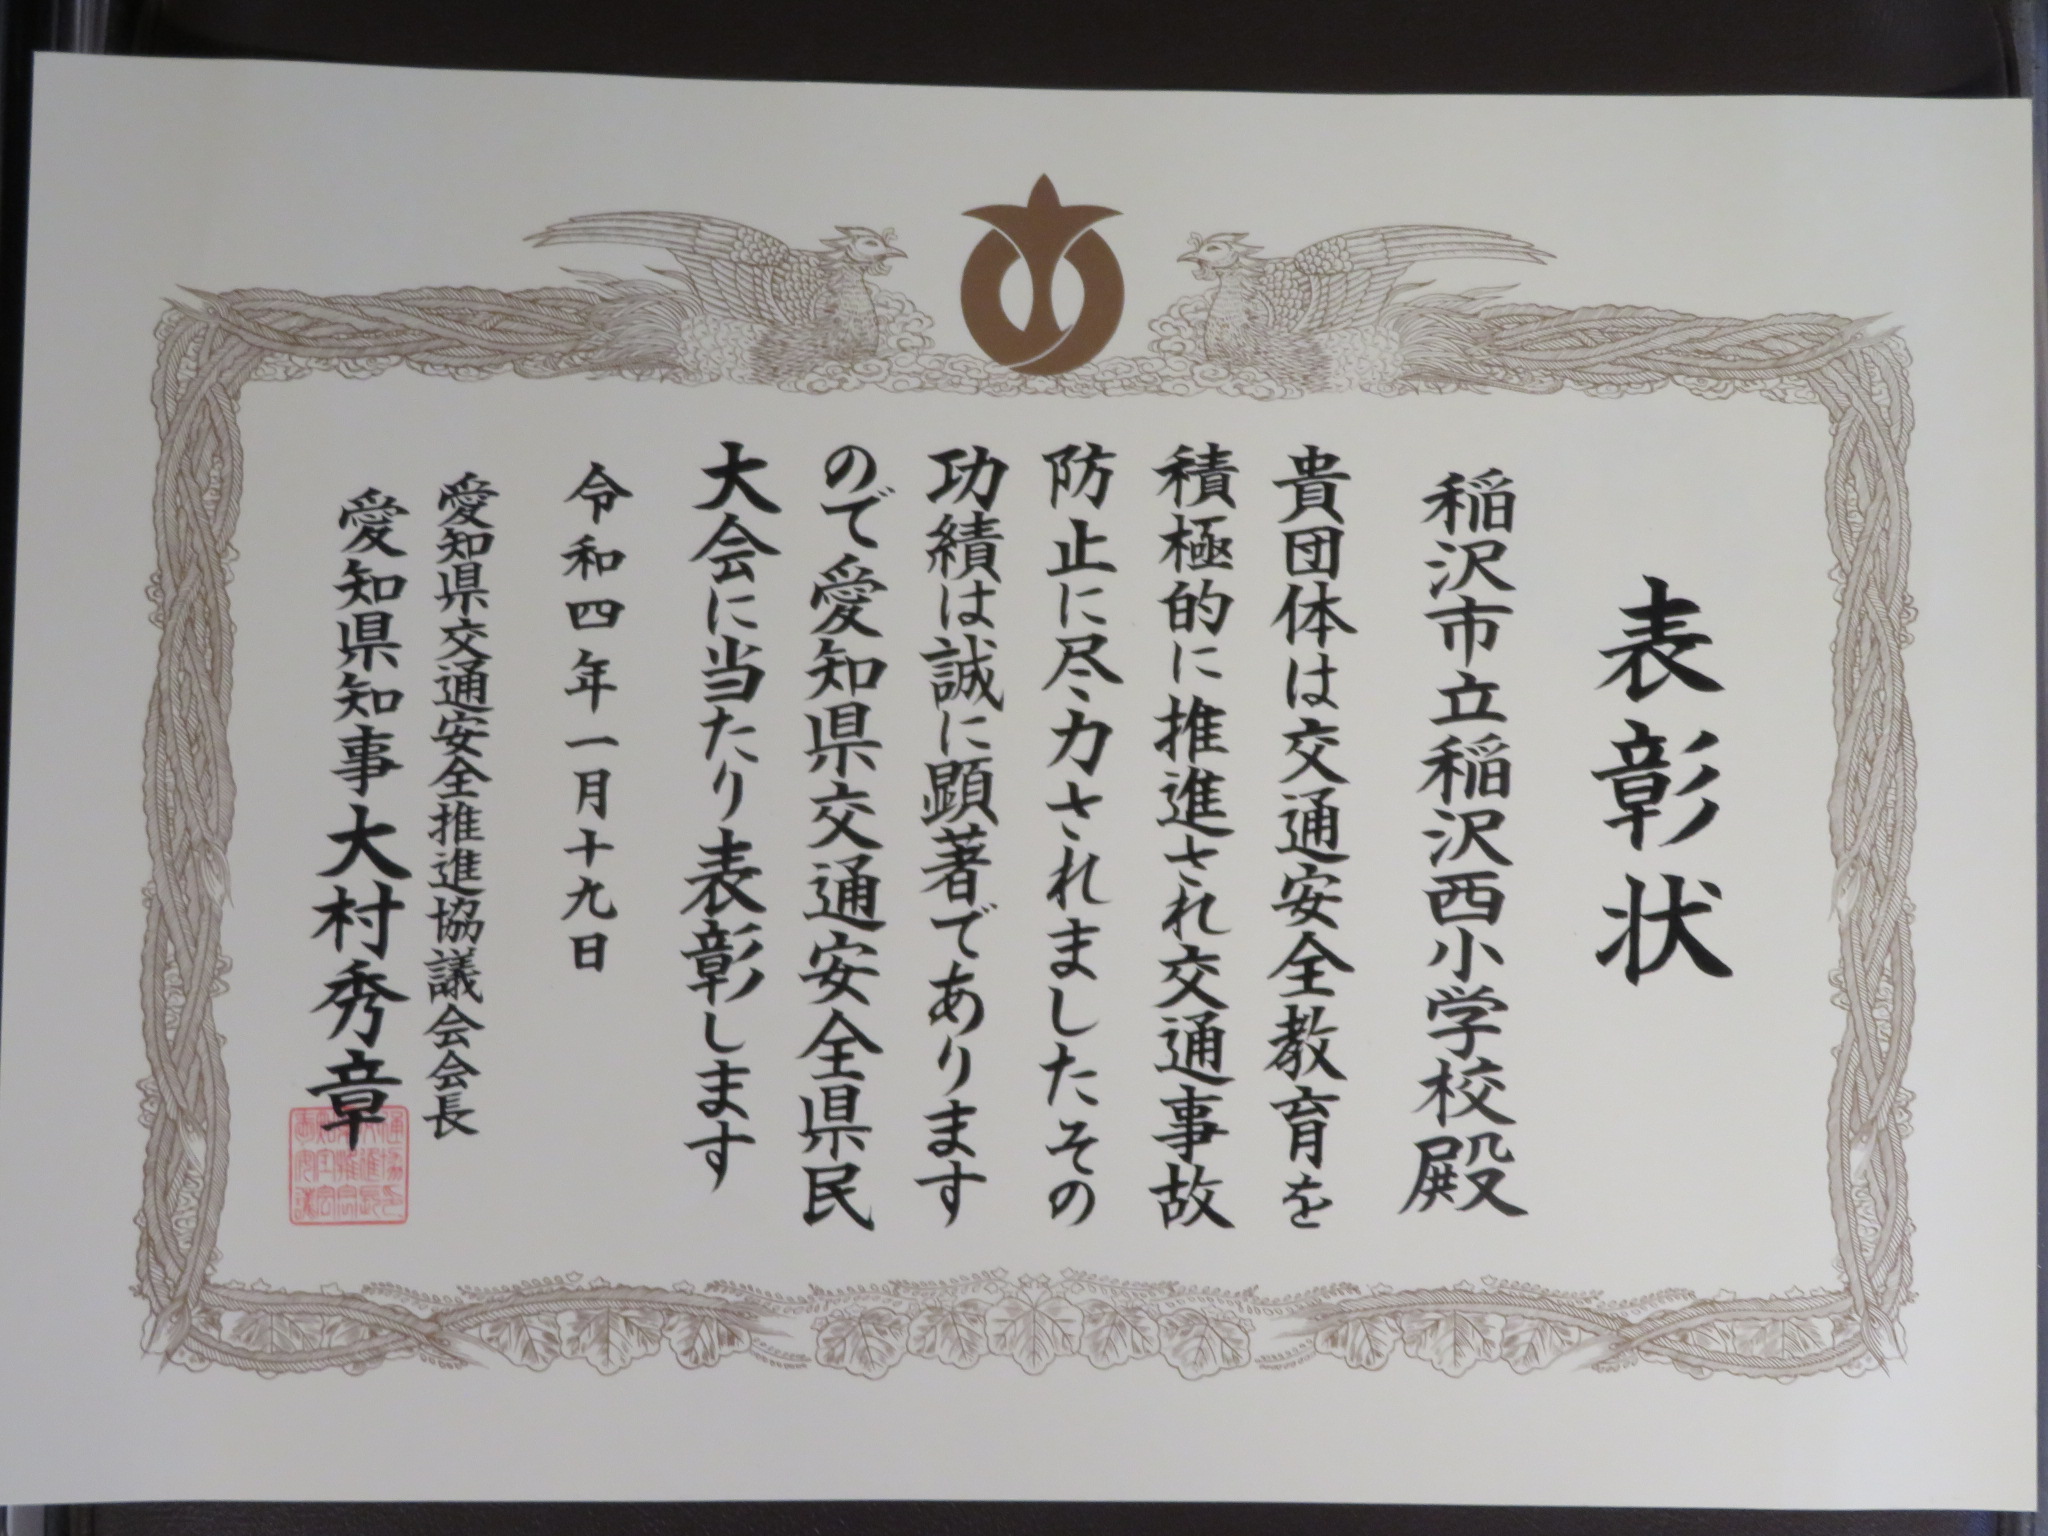 表彰状
稲沢市立稲沢西小学校殿
貴団体は交通安全教育を
積極的に推進され交通事故
防止に尽力されましたその
功績は誠に顕著であります
ので愛知県交通安全県民
大会に当たり表彰します
令和四年一月十九日
愛知県交通安全推進協議会会長
愛知県知事大村秀章